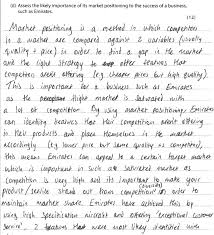 (d) Assess the likely importance of its market positioning to the success of a business,
such as Emirates.
(12)
Market positioning is a method in which competitors
in a market are compared against 2 variables (usually
quality + price) in order to find a gap in the market
and the right strategy to offer features that
competitors aren't offering (e.g. cheaper prices but high quality).
This is important for a business such as Emirates
as the flight market is saturated with
a lot of competition. By using market positioning, Emirates
can identify features that their competition aren't offering
in their products and place themselves in the market
accordingly (e.g. lower price but same quality as competitor),
this means Emirates can appeal to a certain target market
which is important in such a saturated market as
competition is very high and its important to make your
product / service stand out from competition in order to
maintain market share. Emirates have achieved this by
using high specification aircraft and offering 'exceptional customer
service', 2 features that were most likely identified using